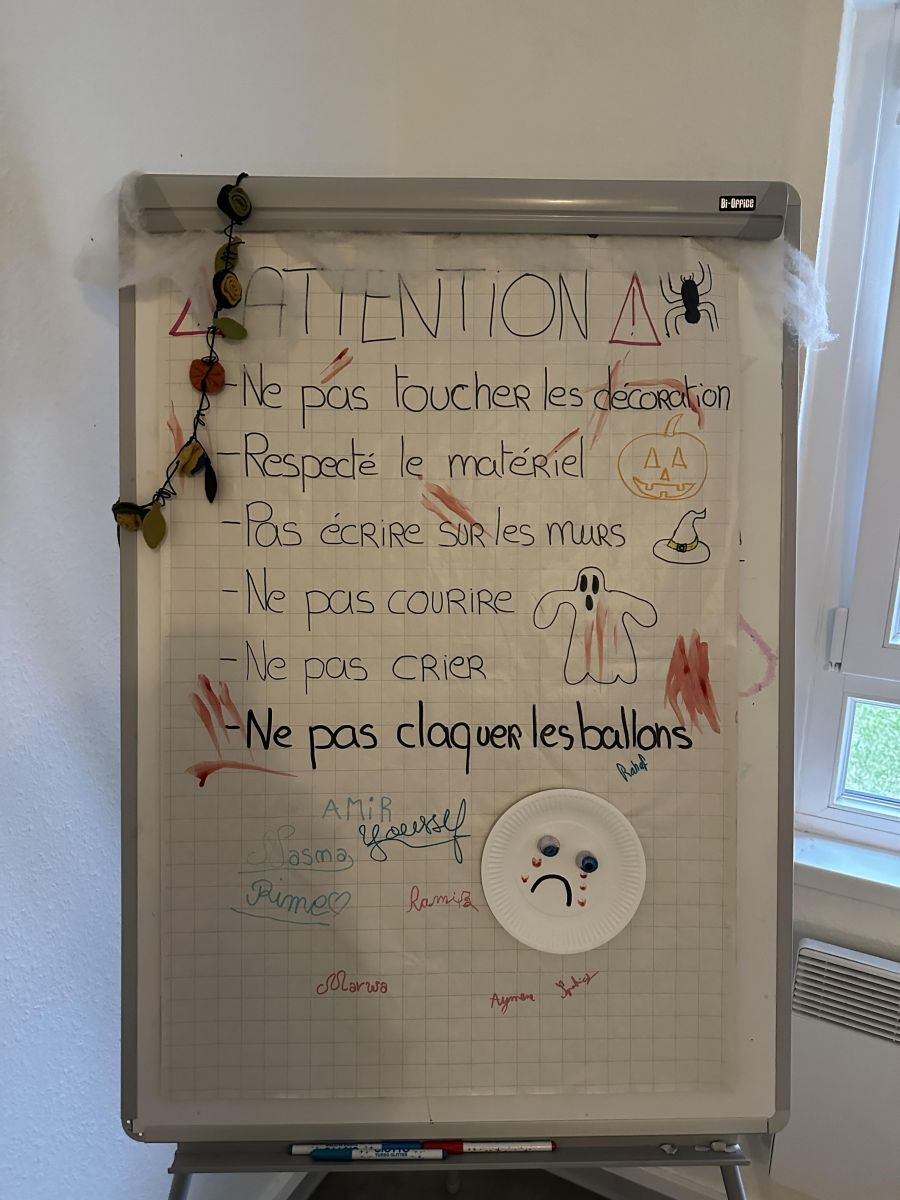 Bi-Office
ATTENTION
- Ne pas toucher les décoration
- Respecté le matériel
- Pas écrire sur les murs
- Ne pas courire
- Ne pas crier
- Ne pas claquer les ballons
Rahaf
AMIR
Youssef
Nasma
Rime
Ramiz
Marwa
Aymene
GIOTTO
TURBO GLITTER